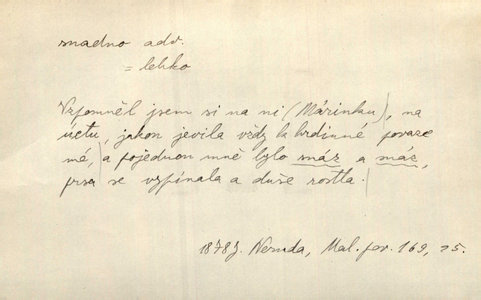 snadno adv.
= lehko
Vzpomněl jsem si na ni (Márinku), na
úctu, jakou jevila vždy k hrdinné povaze
mé, a pojednou mně bylo snáz a snáz,
prsa se vzpínala a duše rostla.
1878 J. Neruda, Mal. pov. 169, 25.